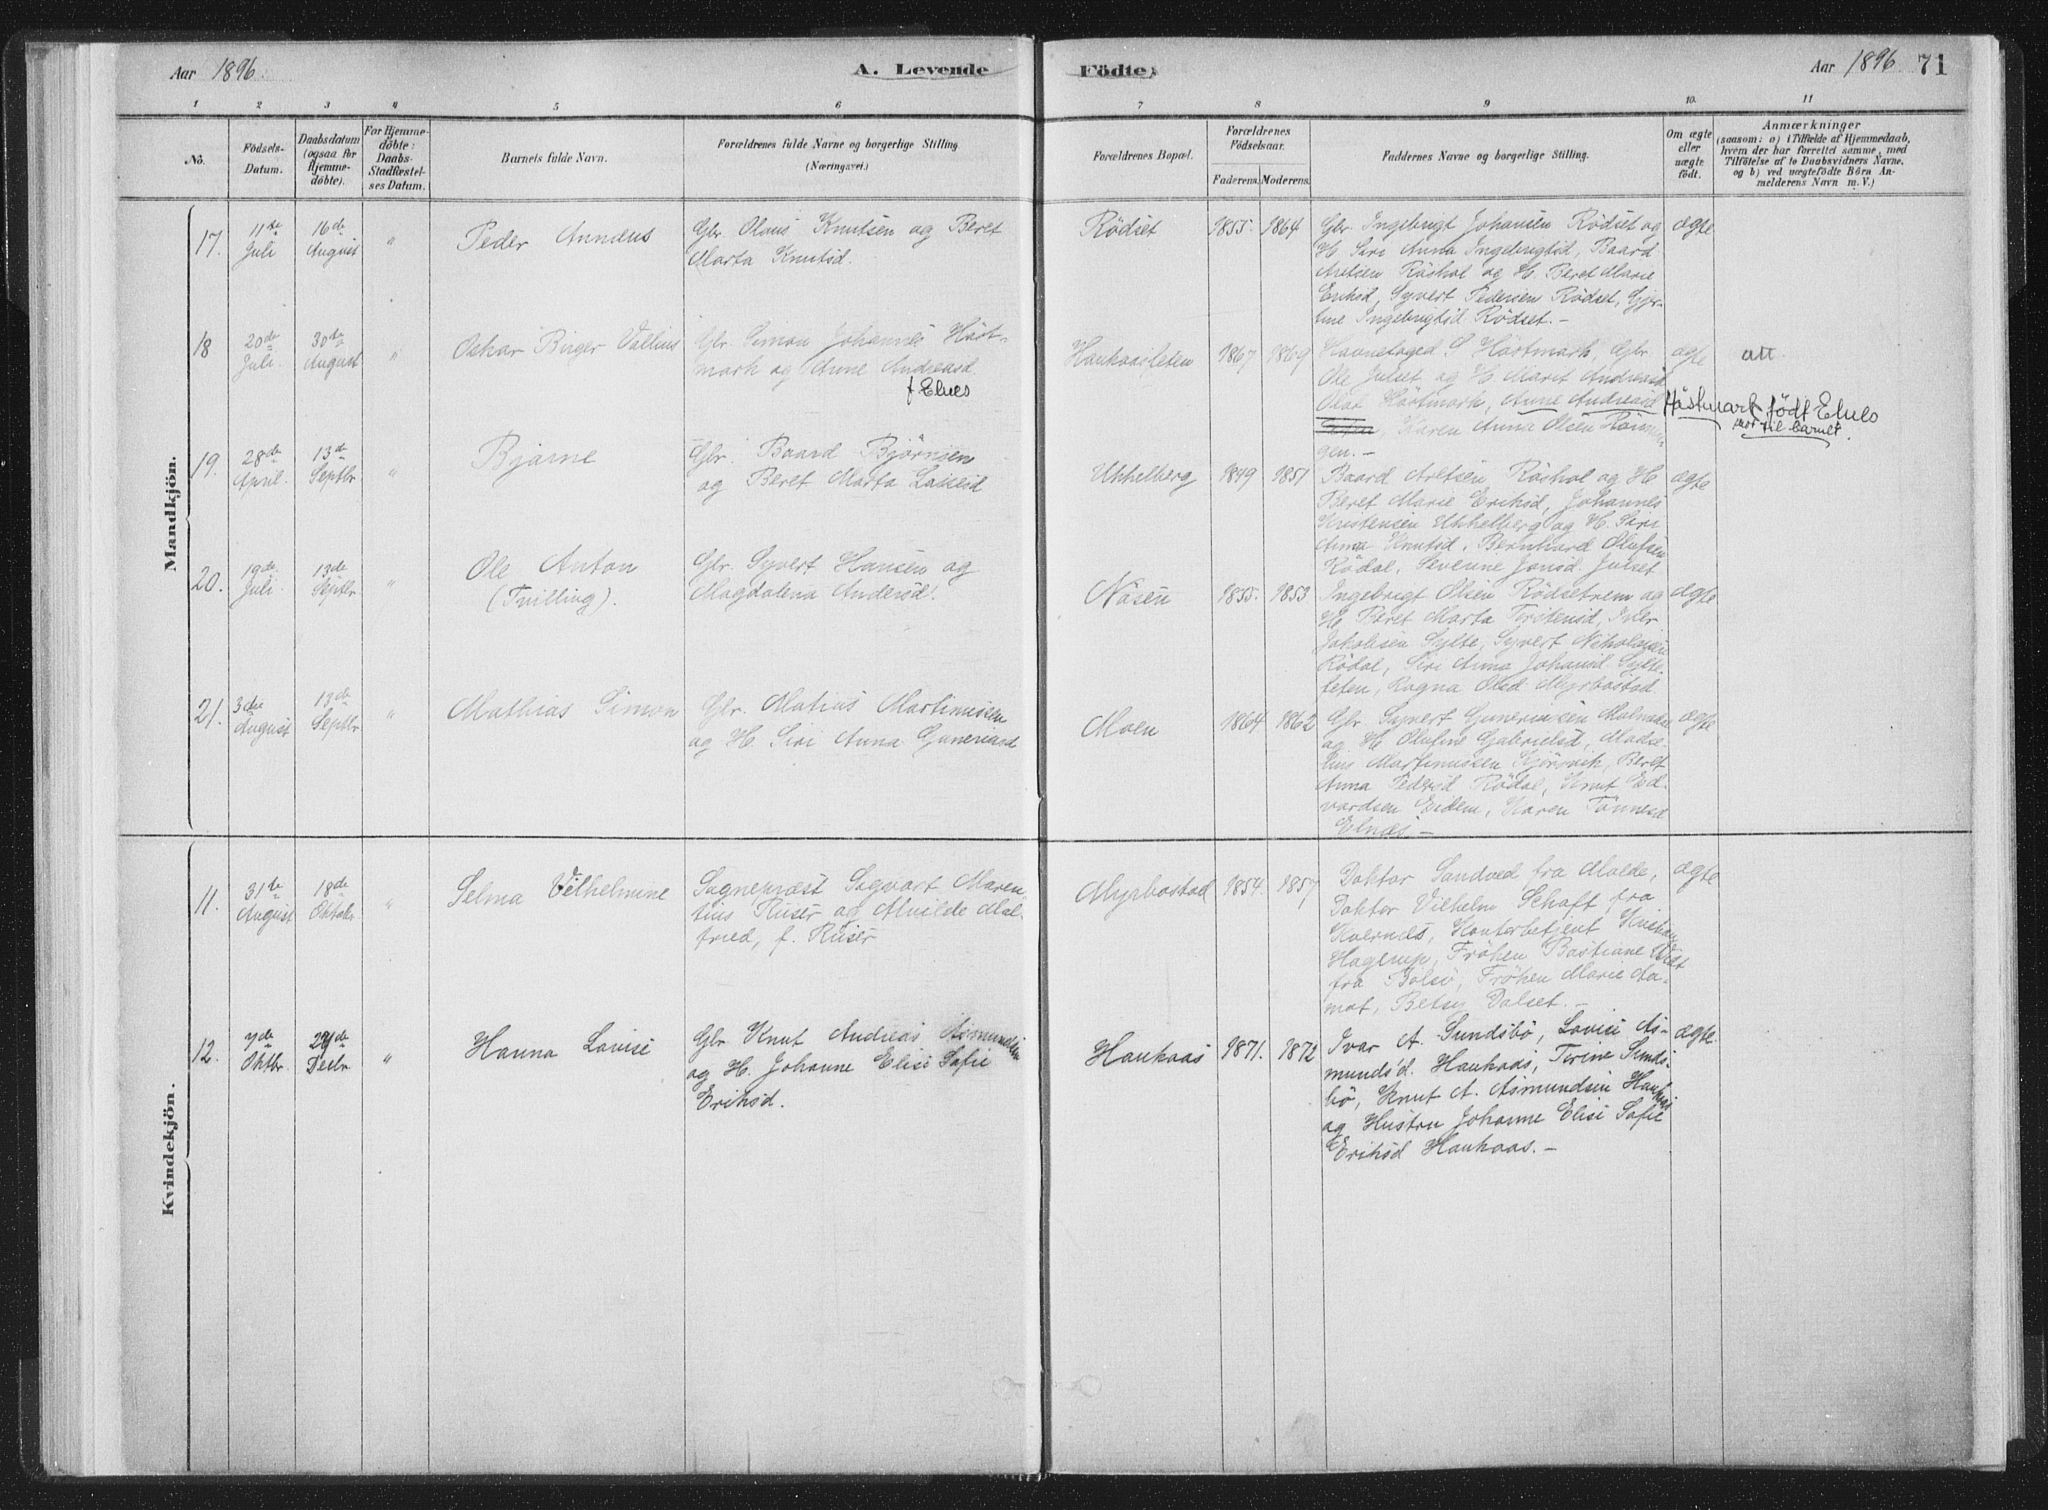 Aar 1896. A. Levende Födte, Aar 1896. 71
1 2 3 4 5 6 7 8 9 10. 11
No.
Födsels-
Datum.
Daabsdatum
(ogsaa for
Hjemme-
döbte).
For Hjemme-
döbte:
Daabs-
Stadfæstel-
ses Datum.
Barnets fulde Navn.
Forældrenes fulde Navne og borgerlige Stilling
(Næringsvei.)
Forældrenes Bopæl.
Forældrenes
Födselsaar.
Faderens. Moderens.
Faddernes Navne og borgerlige Stilling.
Om ægte
eller
uægte
födt.
Anmærkninger
(saasom: a) i Tilfælde af Hjemmedaab,
hvem der har forrettet samme, med
Tilföielse af to Daabsvidners Navne,
og b) ved uægtefödte Börn An-
melderens Navn m. V.)
Mandkjön.
17.
11te
Juli
16de
August
"
Peder Anneus
Gbr. Olaus Knutsen og Beret
Marta Knutsd.
Rödset
1855. 1864
Gbr. Ingebrigt Johansen Rödset og
H. Siri Anna Ingebrigtsd, Baard
Aretsen Röshol og H. Beret Marie
Eriksd, Syvert Pedersen Rödset, Gjer-
tine Ingebrigtsd Rödset. -
ægte
18
20de
Juli.
30te
August
"
Oskar Birger Valius
Gbr. Simon Johannes Höst-
mark og Anne Andreasd
f. Elnes
Haukaasleten
1867 1869
S Höstmark, Gbr.
Ole Julset og H. Marit Andreasd
Olaf Höstmark, Anne Andreasd
Karen Anna Olsen
gen. -
ægte
att
Höstmark födt Elnes
mor til barnet.
19.
28de
April.
13de
Septbr
"
Bjarne
Gbr. Baard Björnsen
og Beret Marta Lassesd
Uhhelberg
1849 1851
Baard Aretsen Röshol og H
Beret Marie Eriksd, Johannes
Kristensen Uhhelberg og H. Siri
Anna Knutsd. Bernhard Olufsen
Rödal, Severine Jonsd. Julset
ægte
20.
19de
Juli.
13de
Septbr
"
Ole Anton
(Tvilling).
Gbr. Syvert Hansen og
Magdalena Andersd.
Näsen
1855. 1853
Ingebrigt Olsen Rödsetrem og
H. Beret Marta Terstensd, Iver
Jakobsen Sylte, Syvert Nikolaisen
Rödal, Siri Anna Johansd Sylte-
leten, Ragna Olsd. Myrbostad
ægte
21.
3die
August
13de
Septbr
"
Mathias Simon
Gbr. Matius Martinussen
og H. Siri Anna Guneriasd
Moen
1864 1862
Gbr Syvert Guneriusen Malme
og H Olufine Gabrielsd, Mathe-
lius Martinussen Kjörsvik, Beret
Anna Pedersd Rödal, Knut Ed-
vardsen Eidem, Karen Tönnesd
Elnes -
ægte
Kvindekjön.
11.
31te
August
18de
Oktobr
"
Selma Vilhelmine
Sognepræst Sigvart Maren-
tius Riiser og Alvilde Mal-
fried, f. Riiser
Myrbostad
1854. 1857
Doktor Sandved fra Molde,
Doktor Vilhelm Schaft, fra
Kvernes, Kontorbetjent Kristian
Hagerup, Fröken Bastiane Widt
fra Bolsö, Fröken Marie Aa-
mot, Betsy Dalset. -
ægte
12.
7de
Oktbr.
27de
Decbr
"
Hanna Lovise
Gbr. Knut Andreas Asmundsen
og H. Johanne Elise Sofie
Eriksd.
Haukaas
1871. 1872
Ivar A. Sundsbö, Lovise As-
mundsd. Haukaas, Terine Sunds-
bö, Knut A. Asmundsen Haukaas
og Hustru Johanne Elise Sofie
Eriksd Haukaas. -
ægte.